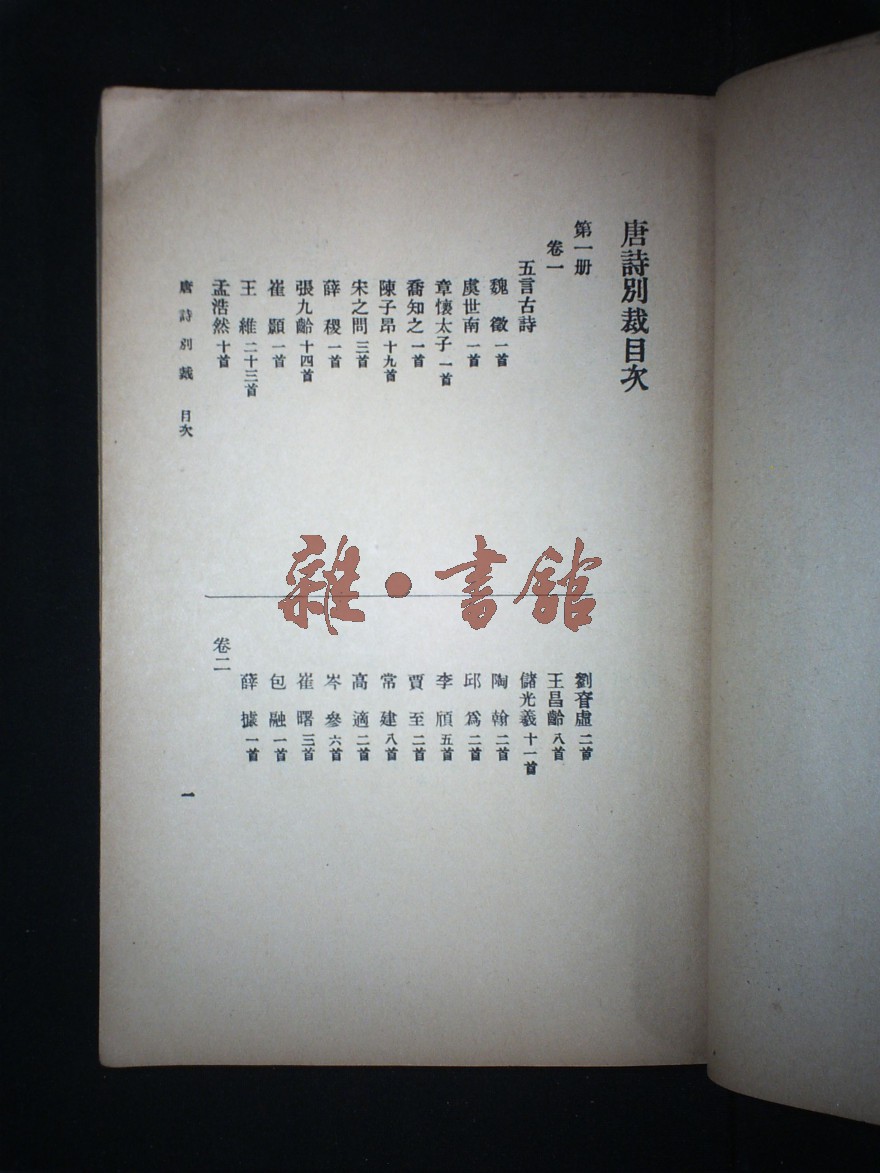 唐詩別裁目次
第一册
卷一
五言古詩
魏徵 一首
虞世南 一首
章懷太子 一首
喬知之 一首
陳子昂 十九首
宋之問 三首
薛稷 一首
張九齡 十四首
崔顥 一首
王維 二十三首
孟浩然 十首
劉眘虛 二首
王昌齡 八首
儲光羲 十一首
陶翰 二首
邱爲 二首
李頎 五首
賈至 二首
常建 八首
高適 二首
岑參 六首
崔曙 三首
包融 一首
薛據 一首
卷二
唐詩別裁 目次
一
雜·書館